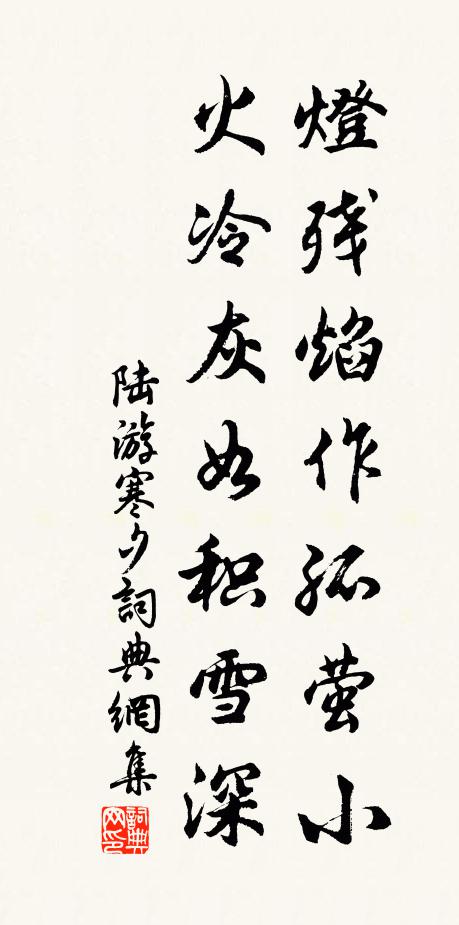 燈残焰作孤萤小
火冷灰如积雪深
陆游寒夕詞典網集
詞典网印